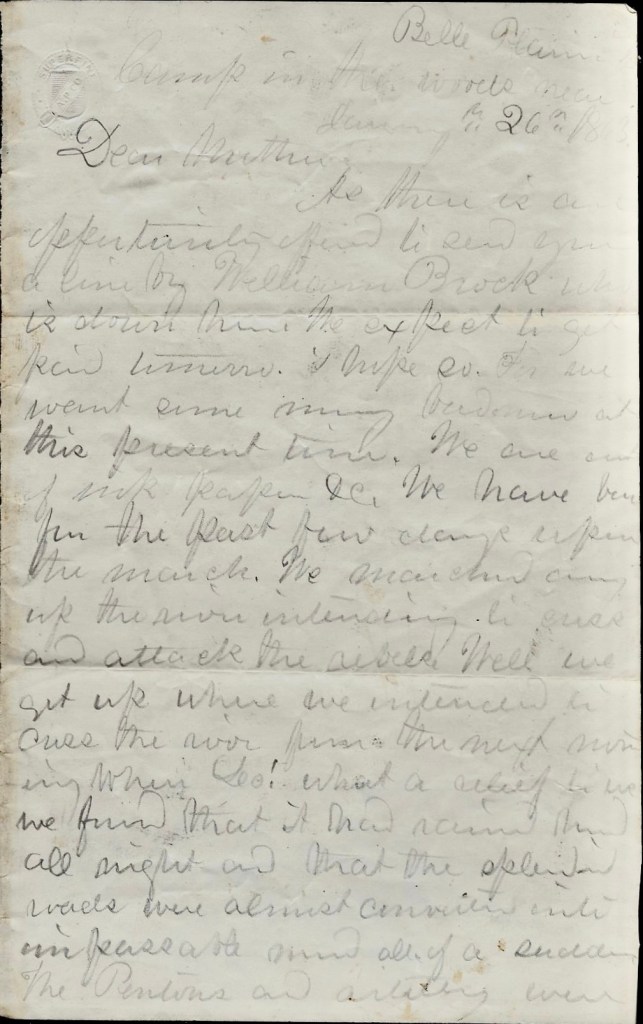 Belle Plain
Camp in the woods near
January 26th
Dear Mother
As there is an
oppertunity offerd to send you
a line by William Brock who
is down here. We expect to get
paid tomorro. I hope so. For we
want some money badly at
this present time. We are out
of ink paper &c. We have been
for the past few days upon
the march. We marched away
up the river intending to cross
and attack the rebels. Well we
got up where we intended to
cross the river from the next morn
ing When Lo! what a relief to us
we found that it had rained hard
all night and that the splendid
roads were almost converted into
impassable mud all of a sudden
The Pontons and artillery were